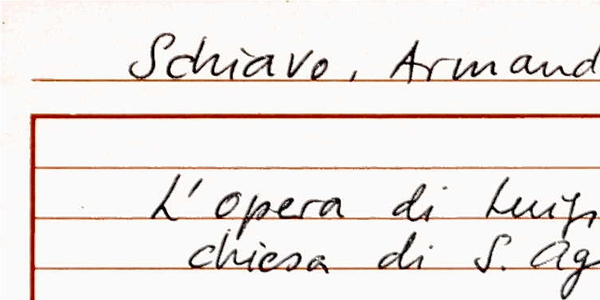 Schiavo, Armand
L'opera di Luig
chiesa di S. Ag